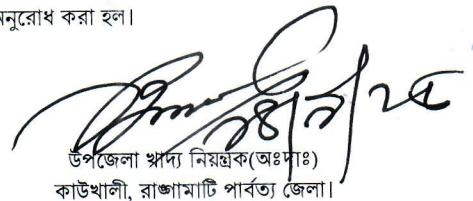 নুরোধ করা হল।
উপজেলা খাদ্য নিয়ন্ত্রক(অঃদাঃ)
কাউখালী, রাঙ্গামাটি পার্বত্য জেলা।